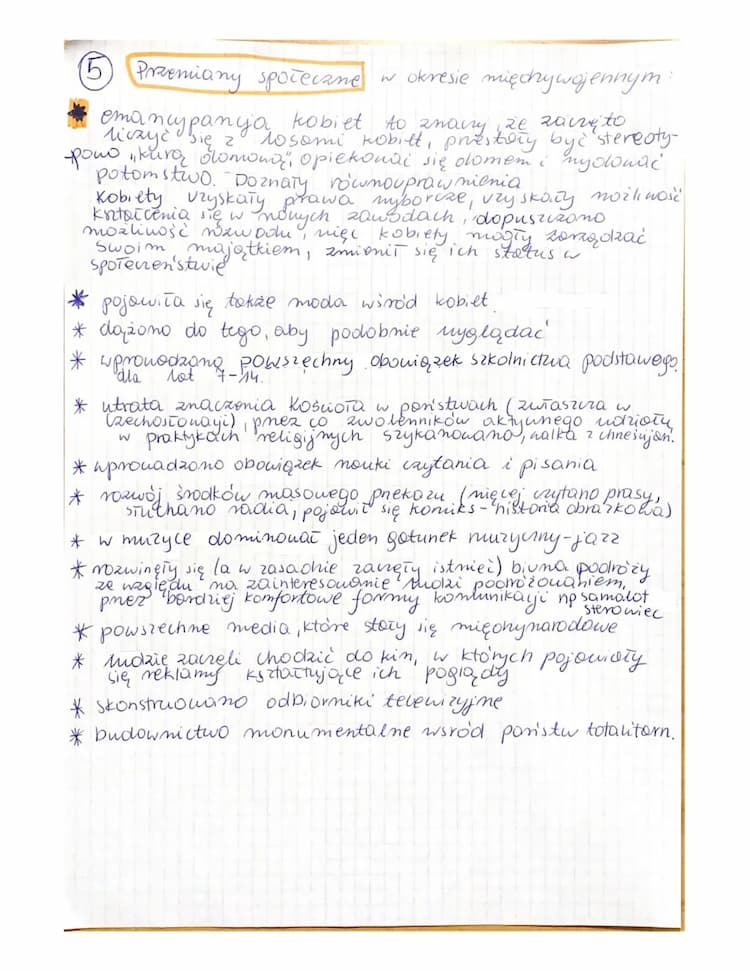 5 Przemiany społeczne w okresie międzywojennym:
* emancypancja kobiet to znaczy, że zaczęto
liczyć się z losami kobiet, przestały być stereoty-
powo „kurą domową", opiekować się domem i wydawać
potomstwo. Doznały równouprawnienia
Kobiety uzyskały prawa wyborcze, uzyskały możliwość
kształcenia się w nowych zawodach, dopuszczono
możliwość rozwodu, więc kobiety mogły zarządzać
swoim majątkiem, zmienił się ich status w
społeczeństwie
* pojawiła się także moda wśród kobiet
* dążono do tego, aby podobnie wyglądać
* wprowadzono powszechny obowiązek szkolnictwa podstawego
dla lat 7-14.
* utrata znaczenia Kościoła w państwach (zwłaszcza w
Czechosłowacji), przez co zwolenników aktywnego udziału
w praktykach religijnych szykanowano, walka z chrześcijan.
* wprowadzono obowiązek nauki czytania i pisania
* rozwój środków masowego przekazu (więcej czytano prasy,
słuchano radia, pojawił się komiks - historia obrazkowa)
* w muzyce dominował jeden gatunek muzyczny - jazz
* rozwinęły się (a w zasadzie zaczęły istnieć) biura podróży
ze względu na zainteresowanie ludzi podróżowaniem,
przez bardziej komfortowe formy komunikacji np samolot
sterowiec
* powszechne media, które stały się międzynarodowe
* ludzie zaczęli chodzić do kin, w których pojawiały
się reklamy kształtujące ich poglądy
* skonstruowano odbiorniki telewizyjne
* budownictwo monumentalne wsród państw totalitarn.